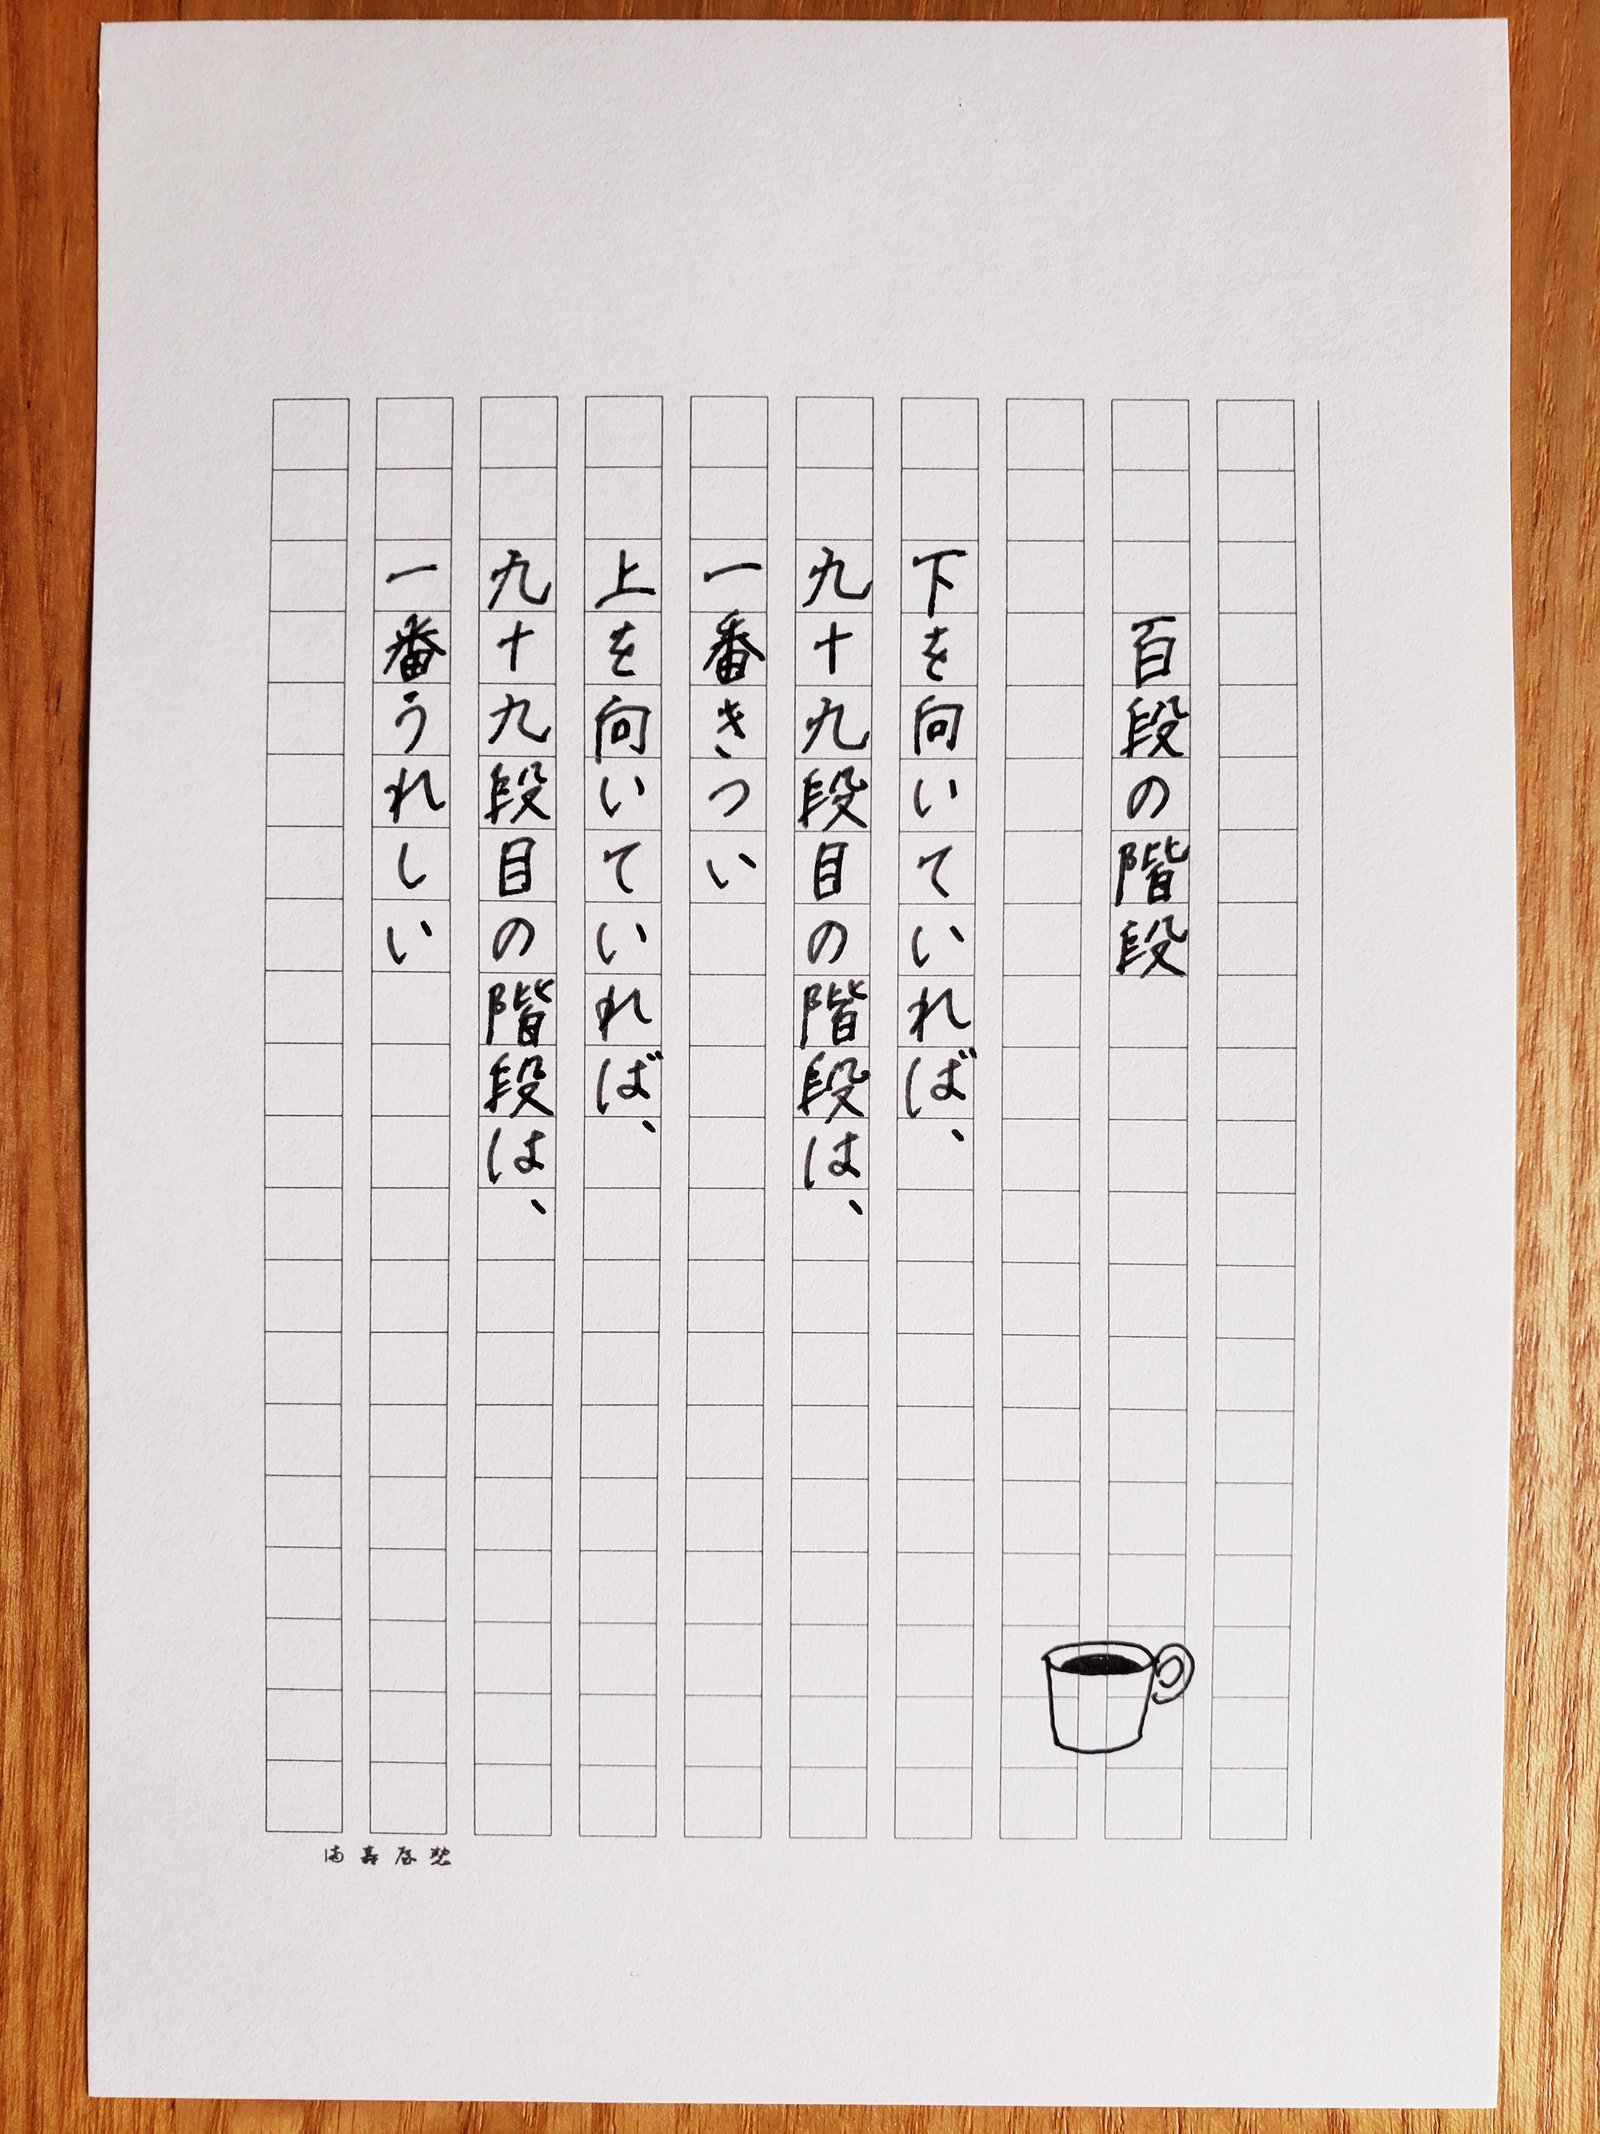 百段の階段
下を向いていれば、
九十九段目の階段は、
一番きつい
上を向いていれば、
九十九段目の階段は、
一番うれしい
満寿屋製